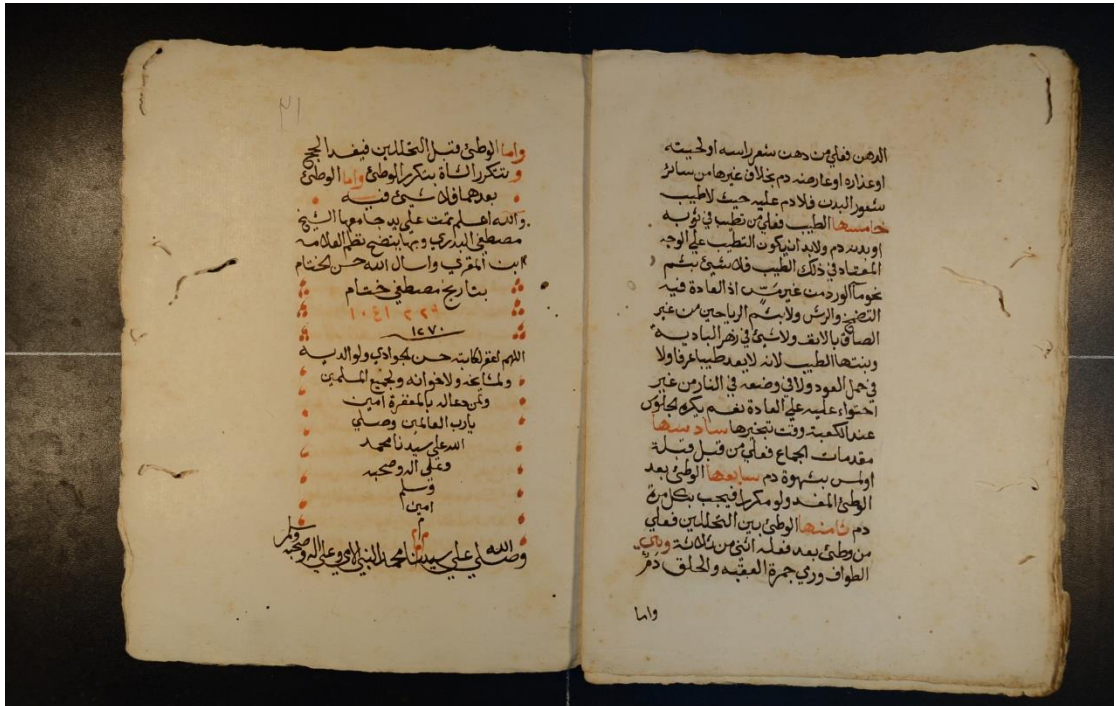 الدهن فعلي من دهن شعر راسه اولحيته
اوعذاره اوعارضه دم بخلاف غيرها من سائر
شعور البدن فلا دم عليه حيث لاطيب
خامسها الطيب فعلي من تطيب في ثوبه
اوبدنه دم ولابد ان يكون التطيب علي الوجه
المعتاد في ذلك الطيب فلا شيئ بشم
نحوماالورد من غير مس اذ العادة فيه
التضمخ والرش ولا بشم الرياحين من غير
الصاق بالانف ولا شيئ في زهر البادية
ونبتها الطيب لانه لايعد طيبا عرفا ولا
في حمل العود ولا في وضعه في النار من غير
احتواء عليه علي العادة نعم يكره الجلوس
عند الكعبة وقت تبخيرها سادسها
مقدمات الجماع فعلي من قبل قبلة
اولمس بشهوة دم سابعها الوطئ بعد
الوطئ المفسد ولو مكررا فيجب بكل مرة
دم ثامنها الوطئ بين التحللين فعلي
من وطئ بعد فعله اثنين من ثلاثة
الطواف ورمي جمرة العقبه والحلق دم
واما
٣١
واما الوطئ قبل التحللين فيفسد الحج
وتتكرر الشاة بتكرر الوطئ واما الوطئ
بعدهما فلا شيئ فيه
والله اعلم تمت علي يد جامعها الشيخ
مصطفي البدري وبها يتضح نظم العلامه
ابن المقري واسال الله حسن الختام
بتاريخ مصطفي ختام
٢٢٩ ١٠٤١
١٢٧٠
اللهم اغفر لكاتبه حسن الجوادي ولوالديه
ولمشايخه ولاخوانه ولجميع المسلمين
ولمن دعا له بالمغفرة امين
يارب العالمين وصلي
الله علي سيدنا محمد
وعلي اله وصحبه
وسلم
امين
م
م م
وصلي الله علي سيدنا محمد النبي الامي وعلي اله وصحبه وسلم